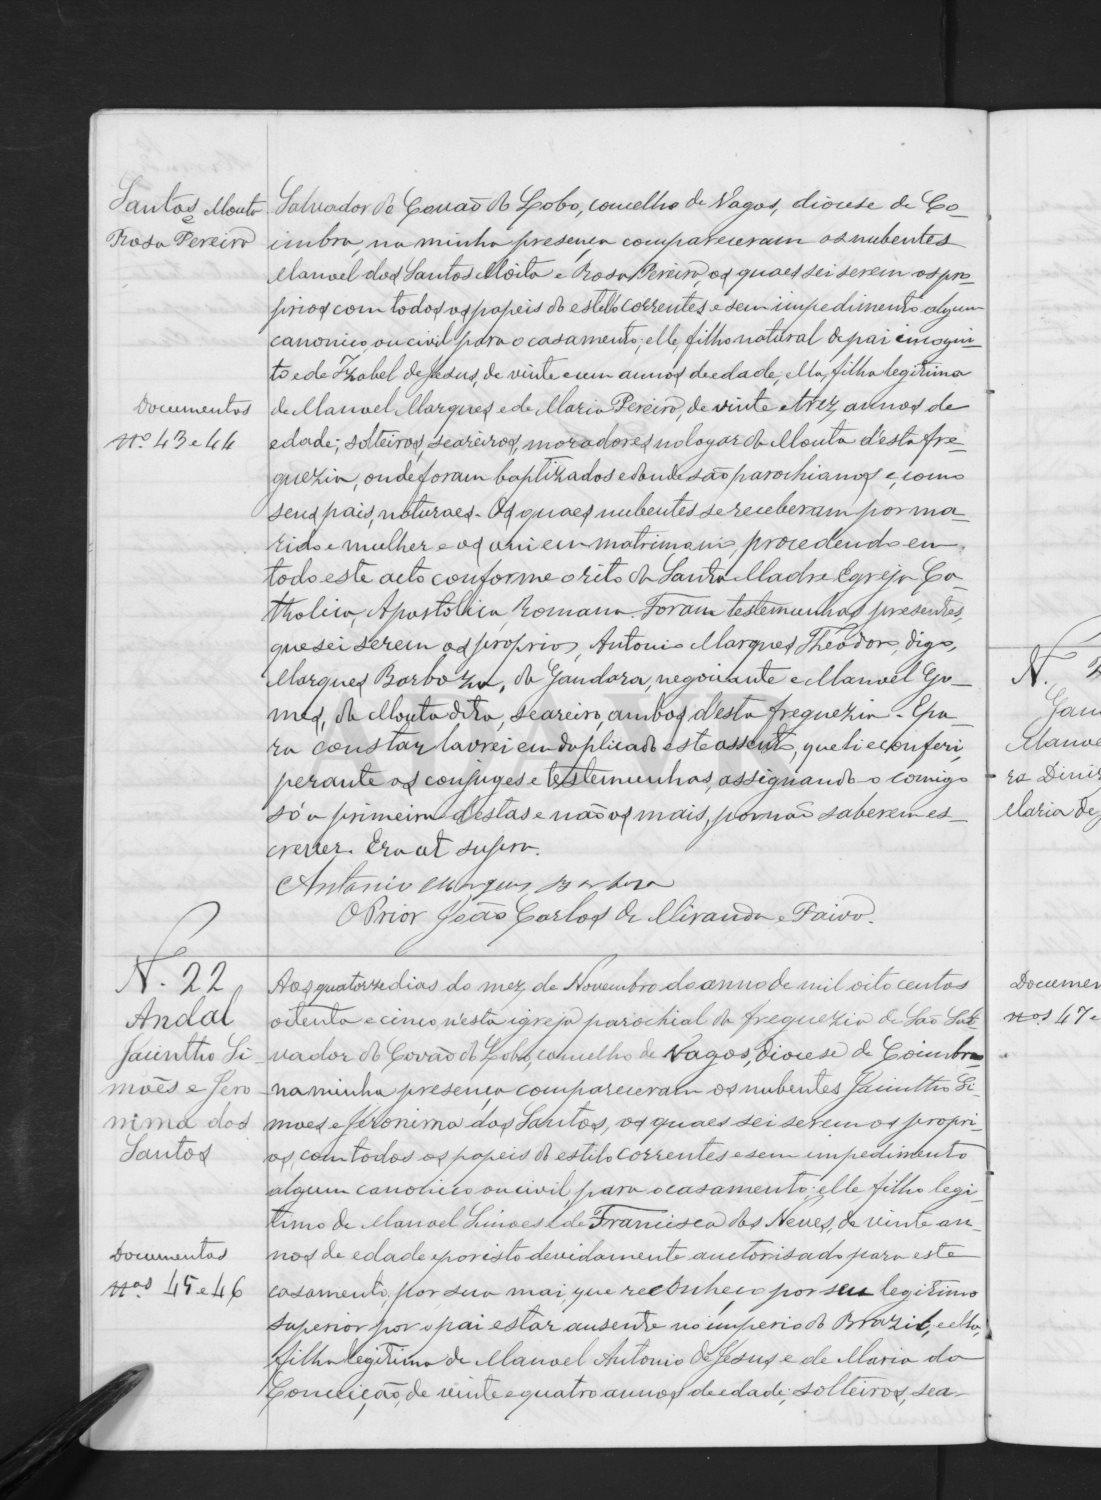 Santos Mouta
e
Rosa Pereira
Documentos
nº 43 e 44
Salvador do Covão do Lobo, concelho de Vagos, diocese de Co-
imbra, na minha presença compareceram os nubentes
Manoel dos Santos Moita e Rosa Pereira, os quaes sei serem os pro-
prios com todos os papeis do estilo correntes e sem impedimento algum
canonico, ou civil para o casamento; elle, filho natural de pai incogni-
to e de Izabel de Jesus, de vinte e um annos de edade, ella, filha legitima
de Manoel Marques e de Maria Pereira, de vinte e trez annos de
edade; solteiros, seareiros, moradores no logar da Mouta d'esta fre-
guezia, onde foram baptizados e donde são parochianos e, como
seus pais, naturaes. Os quaes nubentes se receberam por ma-
rido e mulher e os uni em matrimonio, procedendo em
todo este acto conforme o rito da Santa Madre Egreja Ca-
tholica, Apostolica, Romana. Foram testemunhas presentes,
que sei serem os proprios, Antonio Marques Theodoro, digo,
Marques Barboza, da Gandara, negociante e Manoel Go-
mes, da Mouta dita, seareiro, ambos d'esta freguezia. E pa-
ra constar lavrei em duplicado este assento, que li e conferi,
perante os conjuges e testemunhas, assignando-o comigo
só a primeira d'estas e não os mais, por não saberem es-
crever. Era ut supra.
Antonio Marques Barboza
O Prior João Carlos de Miranda e Paiva.
N. 22
Andal
Jacintho Si-
mões e Jero-
nima dos
Santos
Documentos
nos 45 e 46
Aos quatorze dias do mez de Novembro do anno de mil oito centos
oitenta e cinco, nesta igreja parochial da freguezia de São Sal-
vador do Covão do Lobo, concelho de Vagos, diocese de Coimbra
na minha presença compareceram os nubentes Jacintho Si-
moes e Jeronima dos Santos, os quaes sei serem os propri-
os, com todos os papeis do estilo correntes e sem impedimento
algum canonico ou civil, para o casamento; elle filho legi-
timo de Manoel Simoes e de Francisca das Neves, de vinte an-
nos de edade e por isto devidamente auctorisado para este
casamento, por sua mai, que reconheço por seu legitimo
superior por o pai estar ausente no imperio do Brazil, e ella,
filha legitima de Manoel Antonio de Jesus e de Maria da
Conceição, de vinte e quatro annos de edade; solteiros, sea-
N. 2
Manoe
ra Diniz
Maria de
Documen
nos 47 e
ADAVR